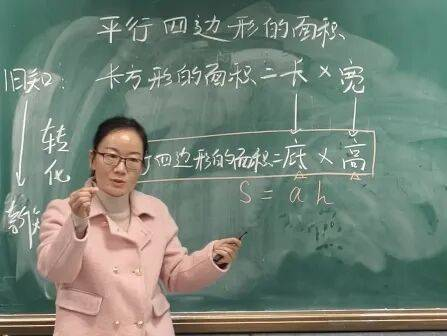 平行四边形的面积
旧知：长方形的面积=长×宽
转化
行四边形的面积=底×高
新知
S=ah